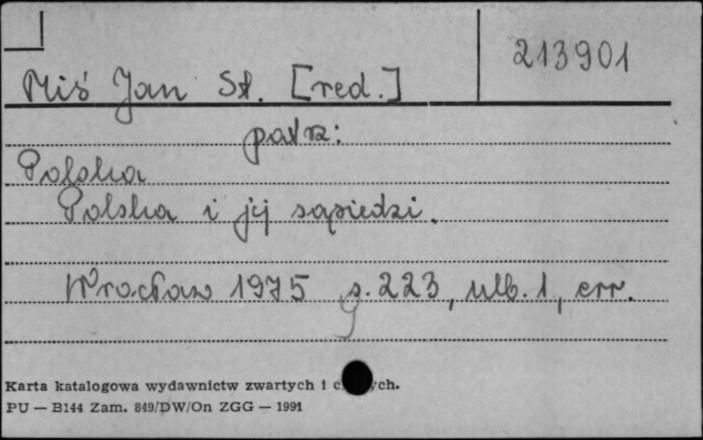 213901
Miś Jan St. [red.]
patrz:
Polska
Polska i jej sąsiedzi.
Wrocław 1975 s. 223, ulb. 1, err.
Karta katalogowa wydawnictw zwartych i ch.
PU — B144 Zam. 849/DW/On ZGG — 1991